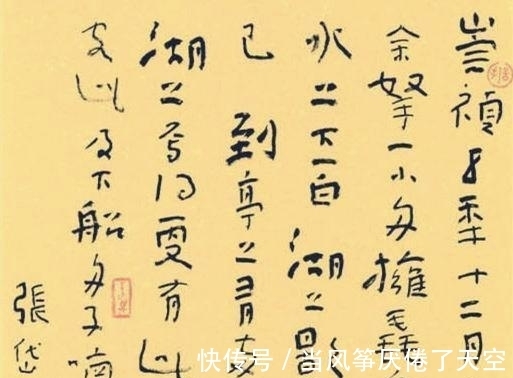 崇禎五年十二月
余拏一小舟擁毳
水上下一白湖上影
已到亭上有
湖上焉得更有此
客此及下船舟子喃
張岱
快传号 / 当风筝厌倦了天空